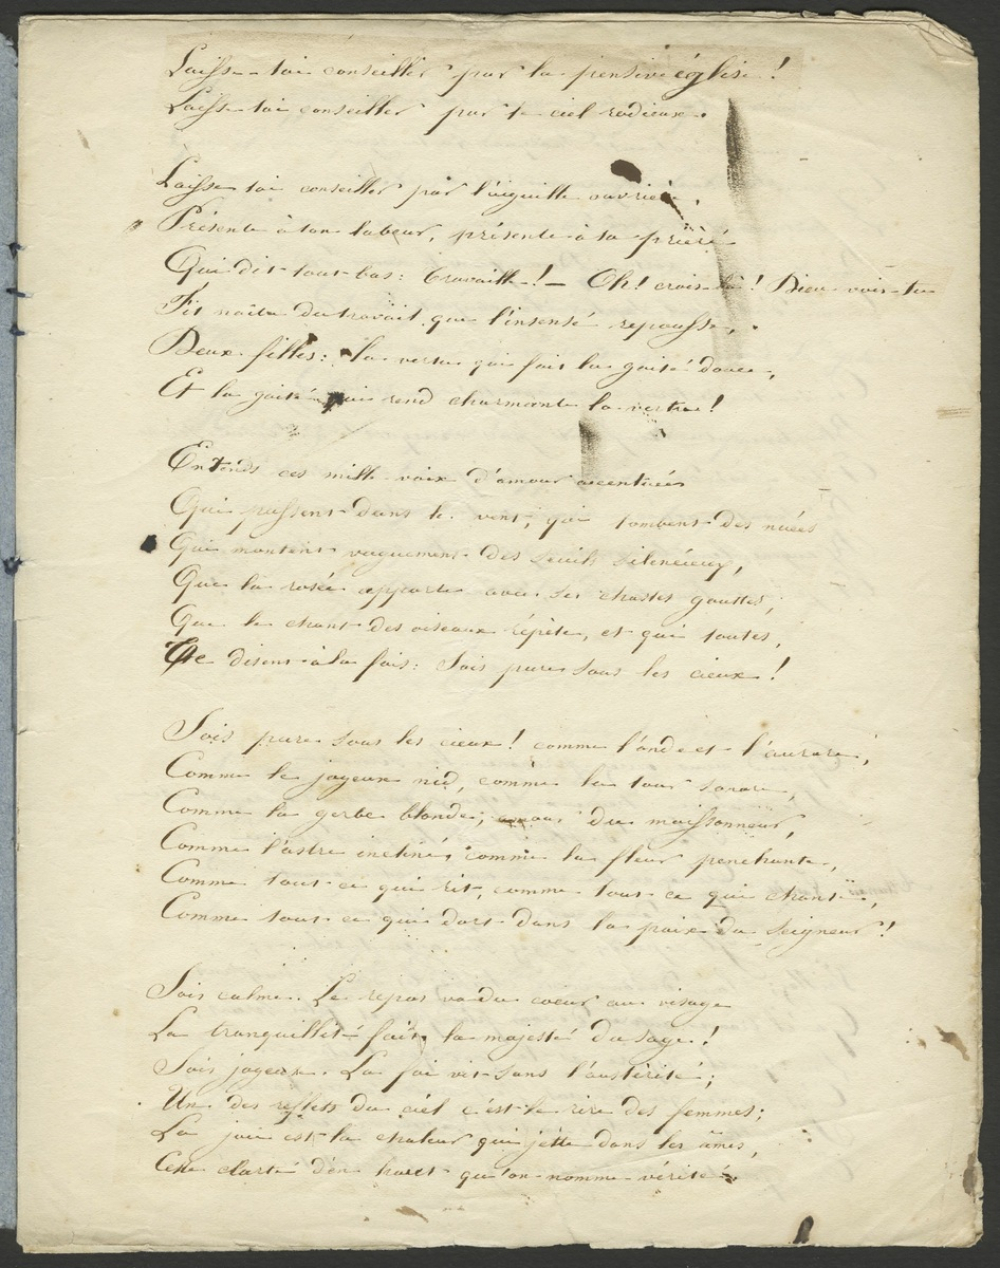 Laisse-toi conseiller par la pensive église!
Laisse toi conseiller par le ciel radieux.
Laisse toi conseiller par l'aiguille ouvrière,
Présente à ton labeur, présente à ta prière
Qui dit tout bas: travaille! — Oh! crois-la! Dieu vois-tu
Fit naître du travail que l'insensé repousse,
Deux filles: la vertu qui fait la gaité douce,
Et la gaité qui rend charmante la vertu!
Entends ces mille voix d'amour accentuées
Qui passent dans le vent, qui tombent des nuées
Qui montent vaguement des seuils silencieux,
Que la rosée apporte avec ses chastes gouttes,
Que le chant des oiseaux répète, et qui toutes,
Te disent à la fois: Sois pure sous les cieux!
Sois pure sous les cieux! comme l'onde et l'aurore,
Comme le joyeux nid, comme la tour sonore,
Comme la gerbe blonde, amour du moissonneur,
Comme l'astre incliné, comme la fleur penchante,
Comme tout ce qui rit, comme tout ce qui chante,
Comme tout ce qui dort dans la paix du Seigneur!
Sois calme. Le repos va du coeur au visage
La tranquillité fait la majesté du sage!
Sois joyeuse. La foi vit sans l'austérité;
Un des reflets du ciel c'est le rire des femmes;
La joie est la chaleur que jette dans les âmes,
Cette clarté d'en haut qu'on nomme vérité